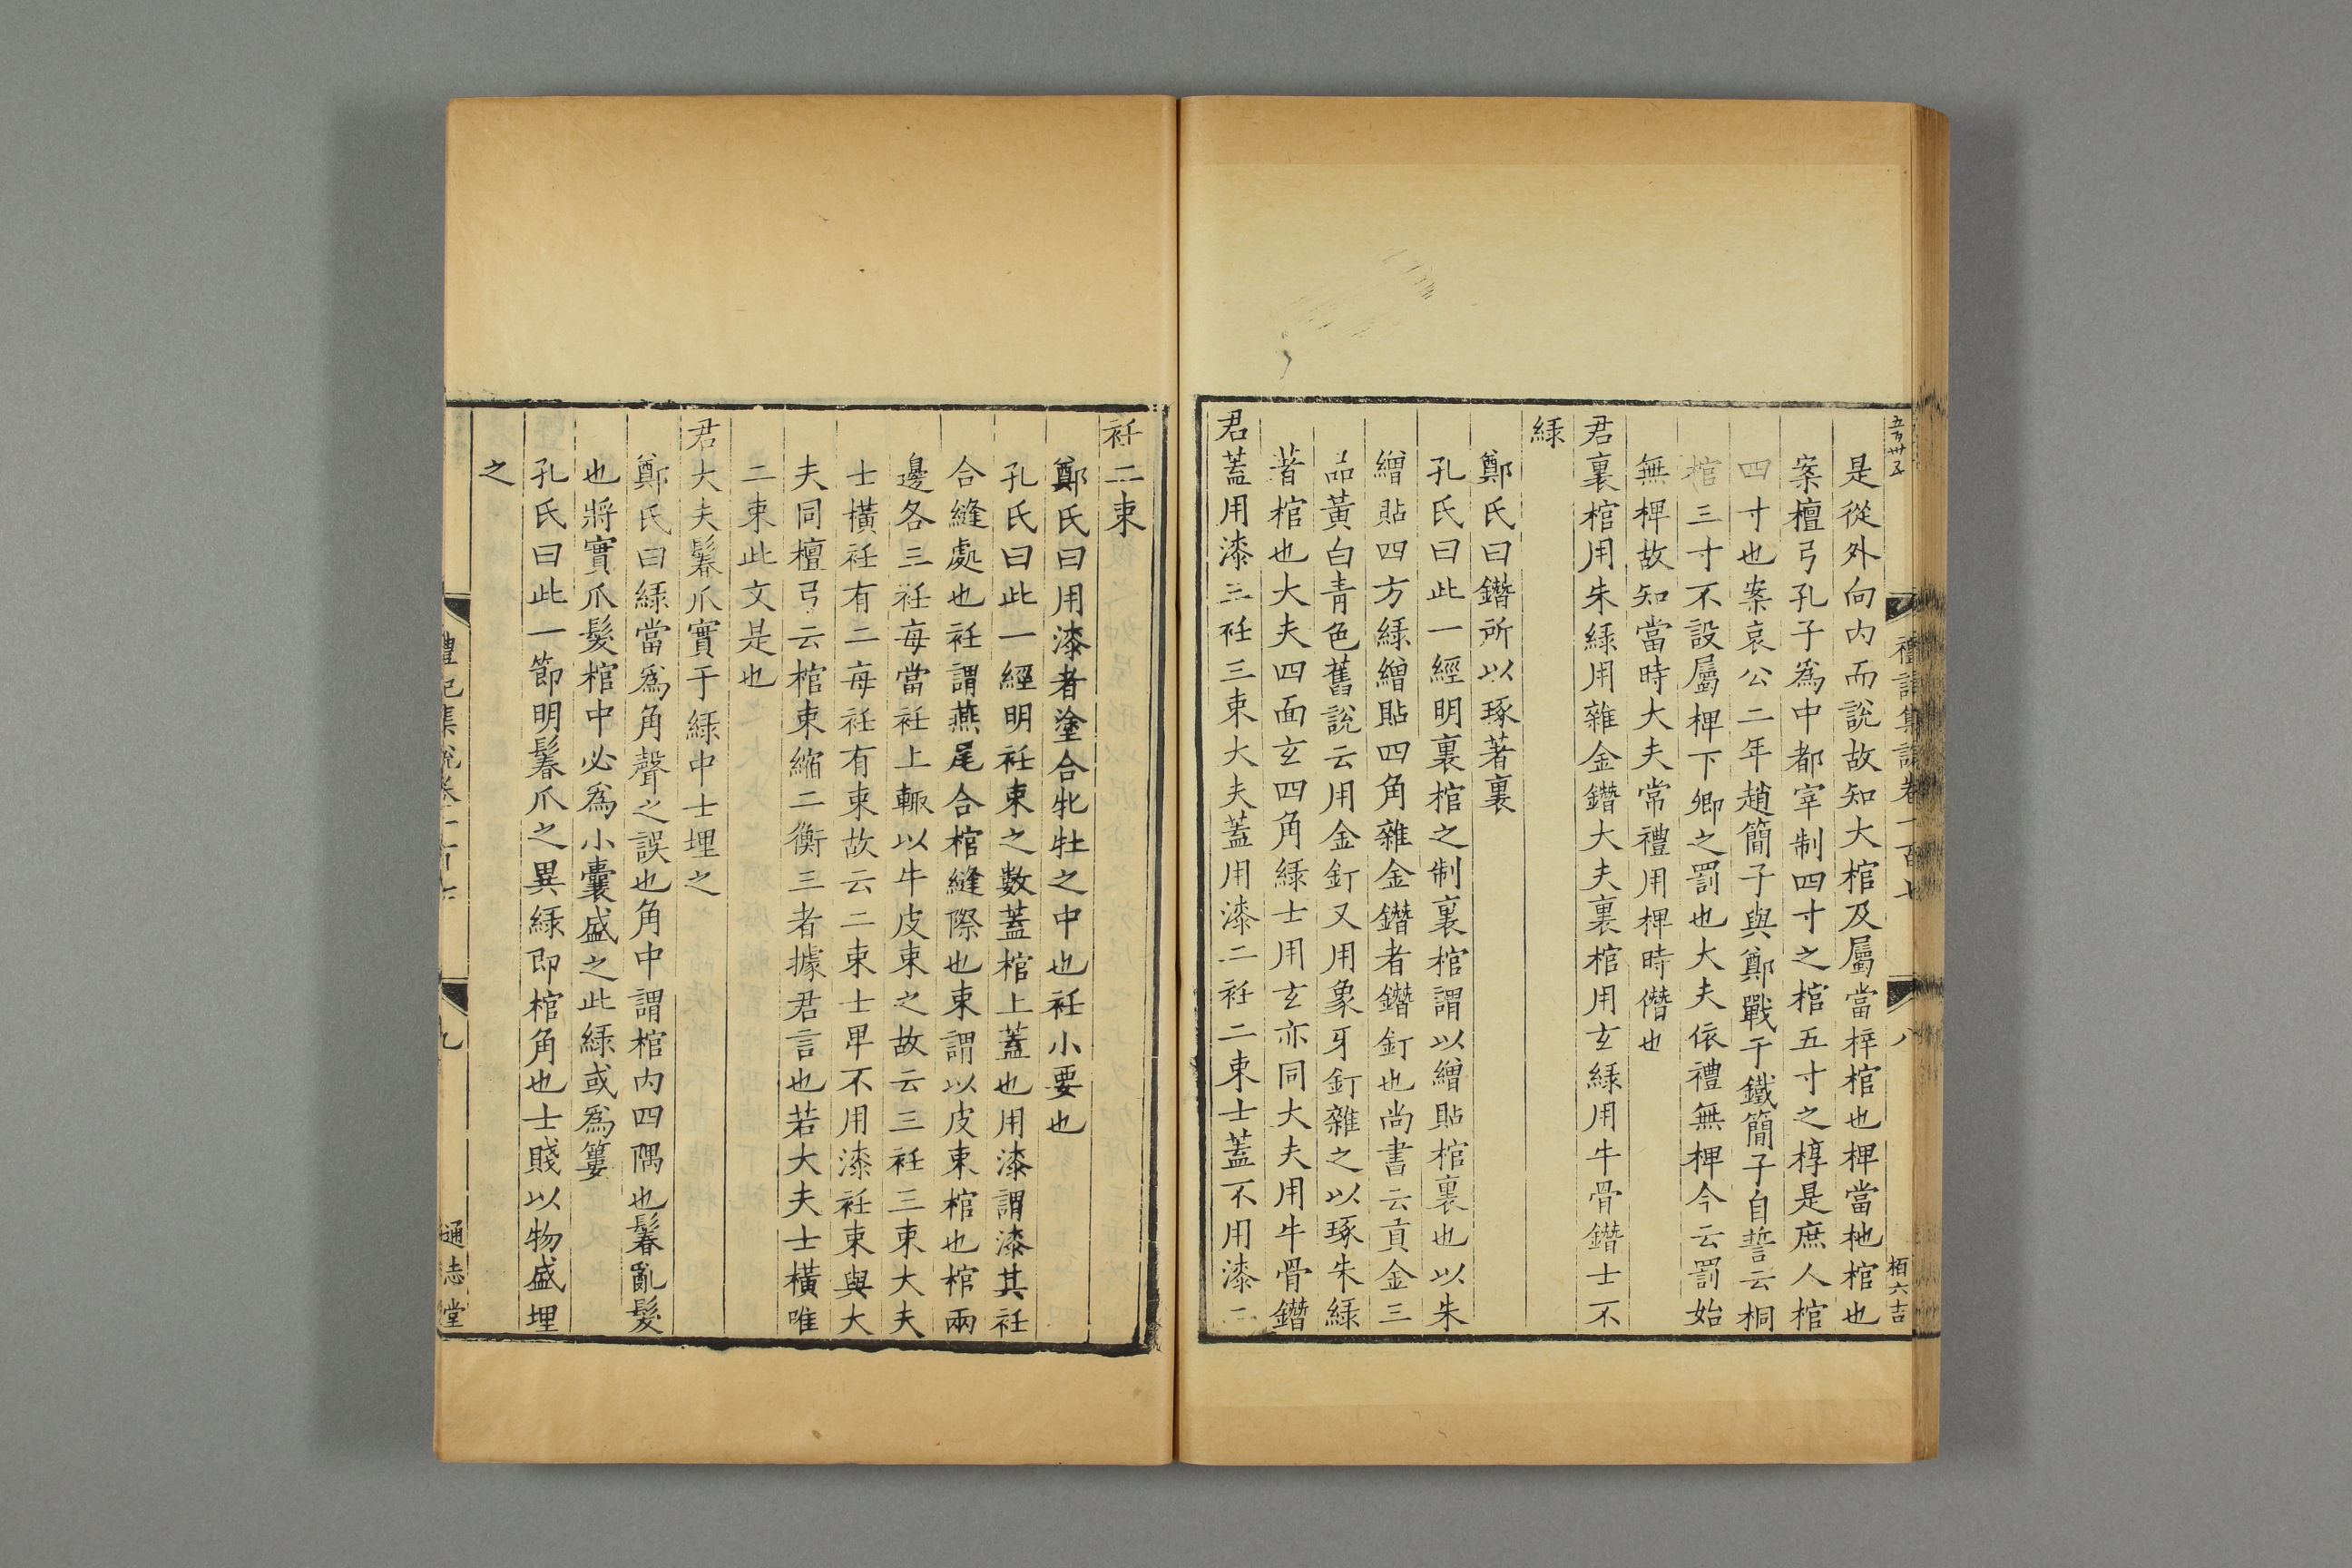 五百卅五
禮記集說卷一百七
八
栢六吉
是從外向内而說故知大棺及屬當梓棺也椑當杝棺也
案檀弓孔子爲中都宰制四寸之棺五寸之椁是庶人棺
四寸也案哀公二年趙簡子與鄭戰于鐵簡子自誓云桐
棺三寸不設屬椑下卿之罰也大夫依禮無椑今云罰始
無椑故知當時大夫常禮用椑時僭也
君裏棺用朱緑用雜金鐕大夫裏棺用玄緑用牛骨鐕士不
緑
鄭氏曰鐕所以琢著裏
孔氏曰此一經明裏棺之制裏棺謂以繒貼棺裏也以朱
繒貼四方緑繒貼四角雜金鐕者鐕釘也尚書云貢金三
品黃白青色舊說云用金釘又用象牙釘雜之以琢朱緑
著棺也大夫四面玄四角緑士用玄亦同大夫用牛骨鐕
君蓋用漆三衽三束大夫蓋用漆二衽二束士蓋不用漆二
衽二束
鄭氏曰用漆者塗合牝牡之中也衽小要也
孔氏曰此一經明衽束之數蓋棺上蓋也用漆謂漆其衽
合縫處也衽謂燕尾合棺縫際也束謂以皮束棺也棺兩
邊各三衽每當衽上輙以牛皮束之故云三衽三束大夫
士橫衽有二每衽有束故云二束士卑不用漆衽束與大
夫同檀弓云棺束縮二衡三者據君言也若大夫士橫唯
二束此文是也
君大夫鬊爪實于緑中士埋之
鄭氏曰緑當爲角聲之誤也角中謂棺内四隅也鬊亂髮
也將實爪髮棺中必爲小囊盛之此緑或爲簍
孔氏曰此一節明鬊爪之異緑即棺角也士賤以物盛埋
之
禮記集說卷一百七
九
通志堂